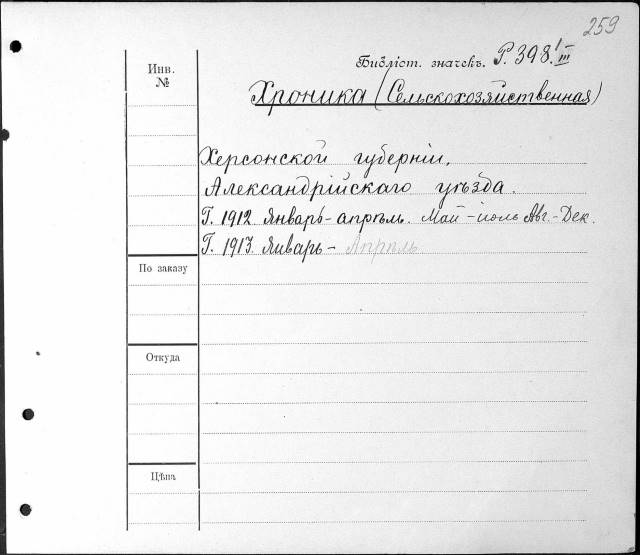 259
Библіот. значекъ. Р. 398. I–III
Инв.
№
Хроника (Сельскохозяйственная)
Херсонской губерніи.
Александрійскаго уѣзда.
Г. 1912 Январь-апрѣль. Май-іюль Авг.-Дек.
Г. 1913. Январь - Апрѣль
По заказу
Откуда
Цѣна